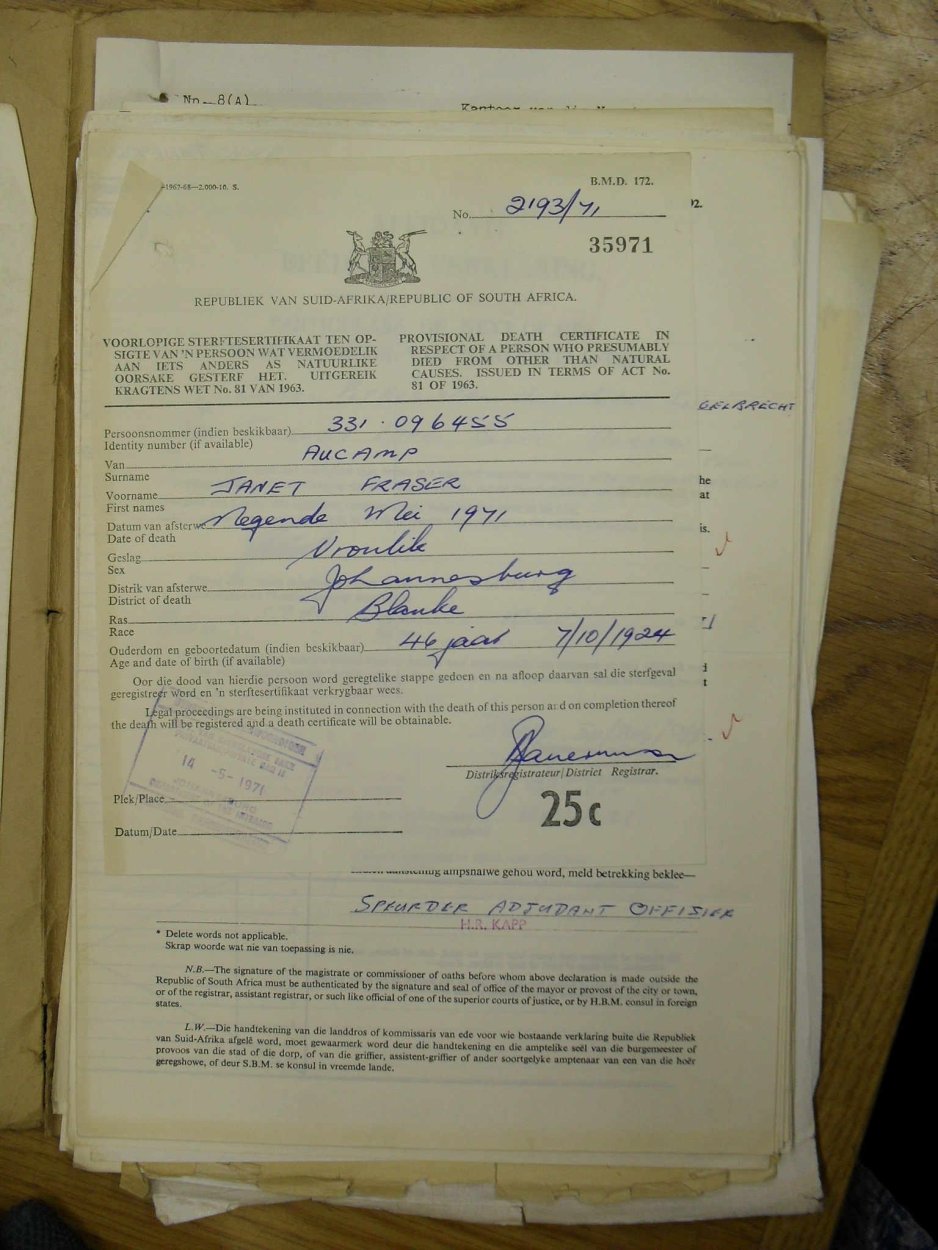 No. 8(A)
-1967-68—2,000-10. S.
B.M.D. 172.
No. 2193/71
35971
REPUBLIEK VAN SUID-AFRIKA/REPUBLIC OF SOUTH AFRICA.
VOORLOPIGE STERFTESERTIFIKAAT TEN OP-
SIGTE VAN 'N PERSOON WAT VERMOEDELIK
AAN IETS ANDERS AS NATUURLIKE
OORSAKE GESTERF HET. UITGEREIK
KRAGTENS WET No. 81 VAN 1963.
PROVISIONAL DEATH CERTIFICATE IN
RESPECT OF A PERSON WHO PRESUMABLY
DIED FROM OTHER THAN NATURAL
CAUSES. ISSUED IN TERMS OF ACT No.
81 OF 1963.
Persoonsnommer (indien beskikbaar) 331·096455
Identity number (if available)
Van AUCAMP
Surname
Voorname JANET FRASER
First names
Datum van afsterwe Negende Mei 1971
Date of death
Geslag Vroulik
Sex
Distrik van afsterwe Johannesburg
District of death
Ras Blanke
Race
Ouderdom en geboortedatum (indien beskikbaar) 46 jaar 7/10/1924
Age and date of birth (if available)
Oor die dood van hierdie persoon word geregtelike stappe gedoen en na afloop daarvan sal die sterfgeval
geregistreer word en 'n sterftesertifikaat verkrygbaar wees.
Legal proceedings are being instituted in connection with the death of this person and on completion thereof
the death will be registered and a death certificate will be obtainable.
14 -5-1971
Distriksregistrateur/District Registrar.
25c
Plek/Place
Datum/Date
ampshalwe gehou word, meld betrekking beklee—
SPEURDER ADJUDANT OFFISIER
H.R. KAPP
* Delete words not applicable.
Skrap woorde wat nie van toepassing is nie.
N.B.—The signature of the magistrate or commissioner of oaths before whom above declaration is made outside the
Republic of South Africa must be authenticated by the signature and seal of office of the mayor or provost of the city or town,
or of the registrar, assistant registrar, or such like official of one of the superior courts of justice, or by H.B.M. consul in foreign
states.
L.W.—Die handtekening van die landdros of kommissaris van ede voor wie bostaande verklaring buite die Republiek
van Suid-Afrika afgelê word, moet gewaarmerk word deur die handtekening en die amptelike seël van die burgemeester of
provoos van die stad of die dorp, of van die griffier, assistent-griffier of ander soortgelyke amptenaar van een van die hoër
geregshowe, of deur S.B.M. se konsul in vreemde lande.